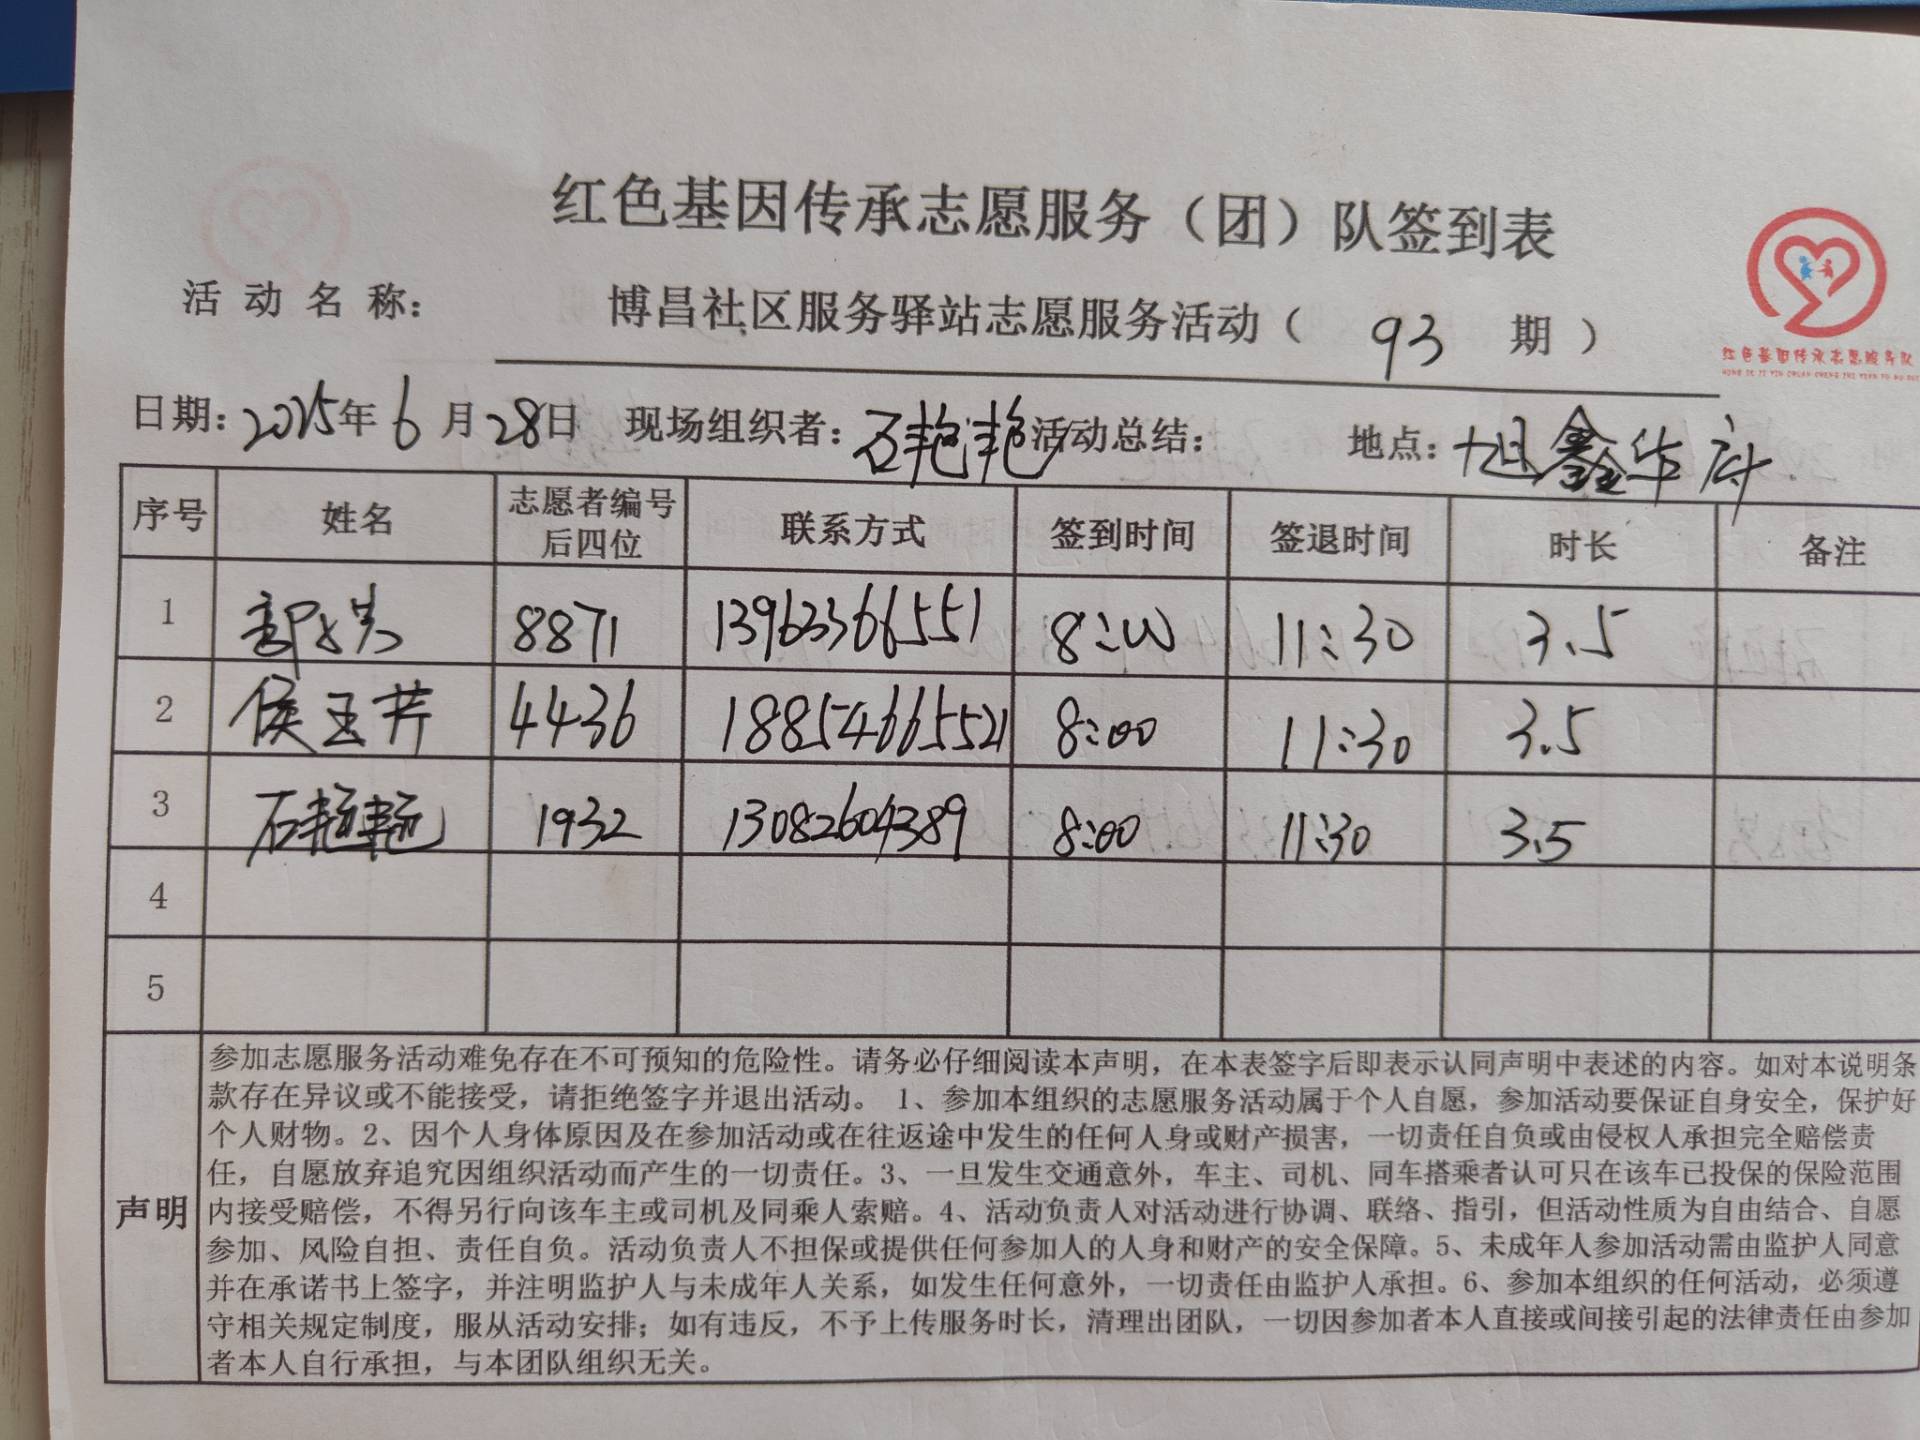 红色基因传承志愿服务（团）队签到表
活动名称： 博昌社区服务驿站志愿服务活动（ 93 期）
红色基因传承志愿服务队
日期：2025年6月28日 现场组织者：石艳艳 活动总结： 地点：旭鑫华府
序号 姓名 志愿者编号后四位 联系方式 签到时间 签退时间 时长 备注
1 8871 13963366551 8:00 11:30 3.5
2 侯玉芹 4436 18854665521 8:00 11:30 3.5
3 石艳艳 1932 13082604389 8:00 11:30 3.5
4
5
声明
参加志愿服务活动难免存在不可预知的危险性。请务必仔细阅读本声明，在本表签字后即表示认同声明中表述的内容。如对本说明条
款存在异议或不能接受，请拒绝签字并退出活动。 1、参加本组织的志愿服务活动属于个人自愿，参加活动要保证自身安全，保护好
个人财物。2、因个人身体原因及在参加活动或在往返途中发生的任何人身或财产损害，一切责任自负或由侵权人承担完全赔偿责
任，自愿放弃追究因组织活动而产生的一切责任。3、一旦发生交通意外，车主、司机、同车搭乘者认可只在该车已投保的保险范围
内接受赔偿，不得另行向该车主或司机及同乘人索赔。4、活动负责人对活动进行协调、联络、指引，但活动性质为自由结合、自愿
参加、风险自担、责任自负。活动负责人不担保或提供任何参加人的人身和财产的安全保障。5、未成年人参加活动需由监护人同意
并在承诺书上签字，并注明监护人与未成年人关系，如发生任何意外，一切责任由监护人承担。6、参加本组织的任何活动，必须遵
守相关规定制度，服从活动安排；如有违反，不予上传服务时长，清理出团队，一切因参加者本人直接或间接引起的法律责任由参加
者本人自行承担，与本团队组织无关。